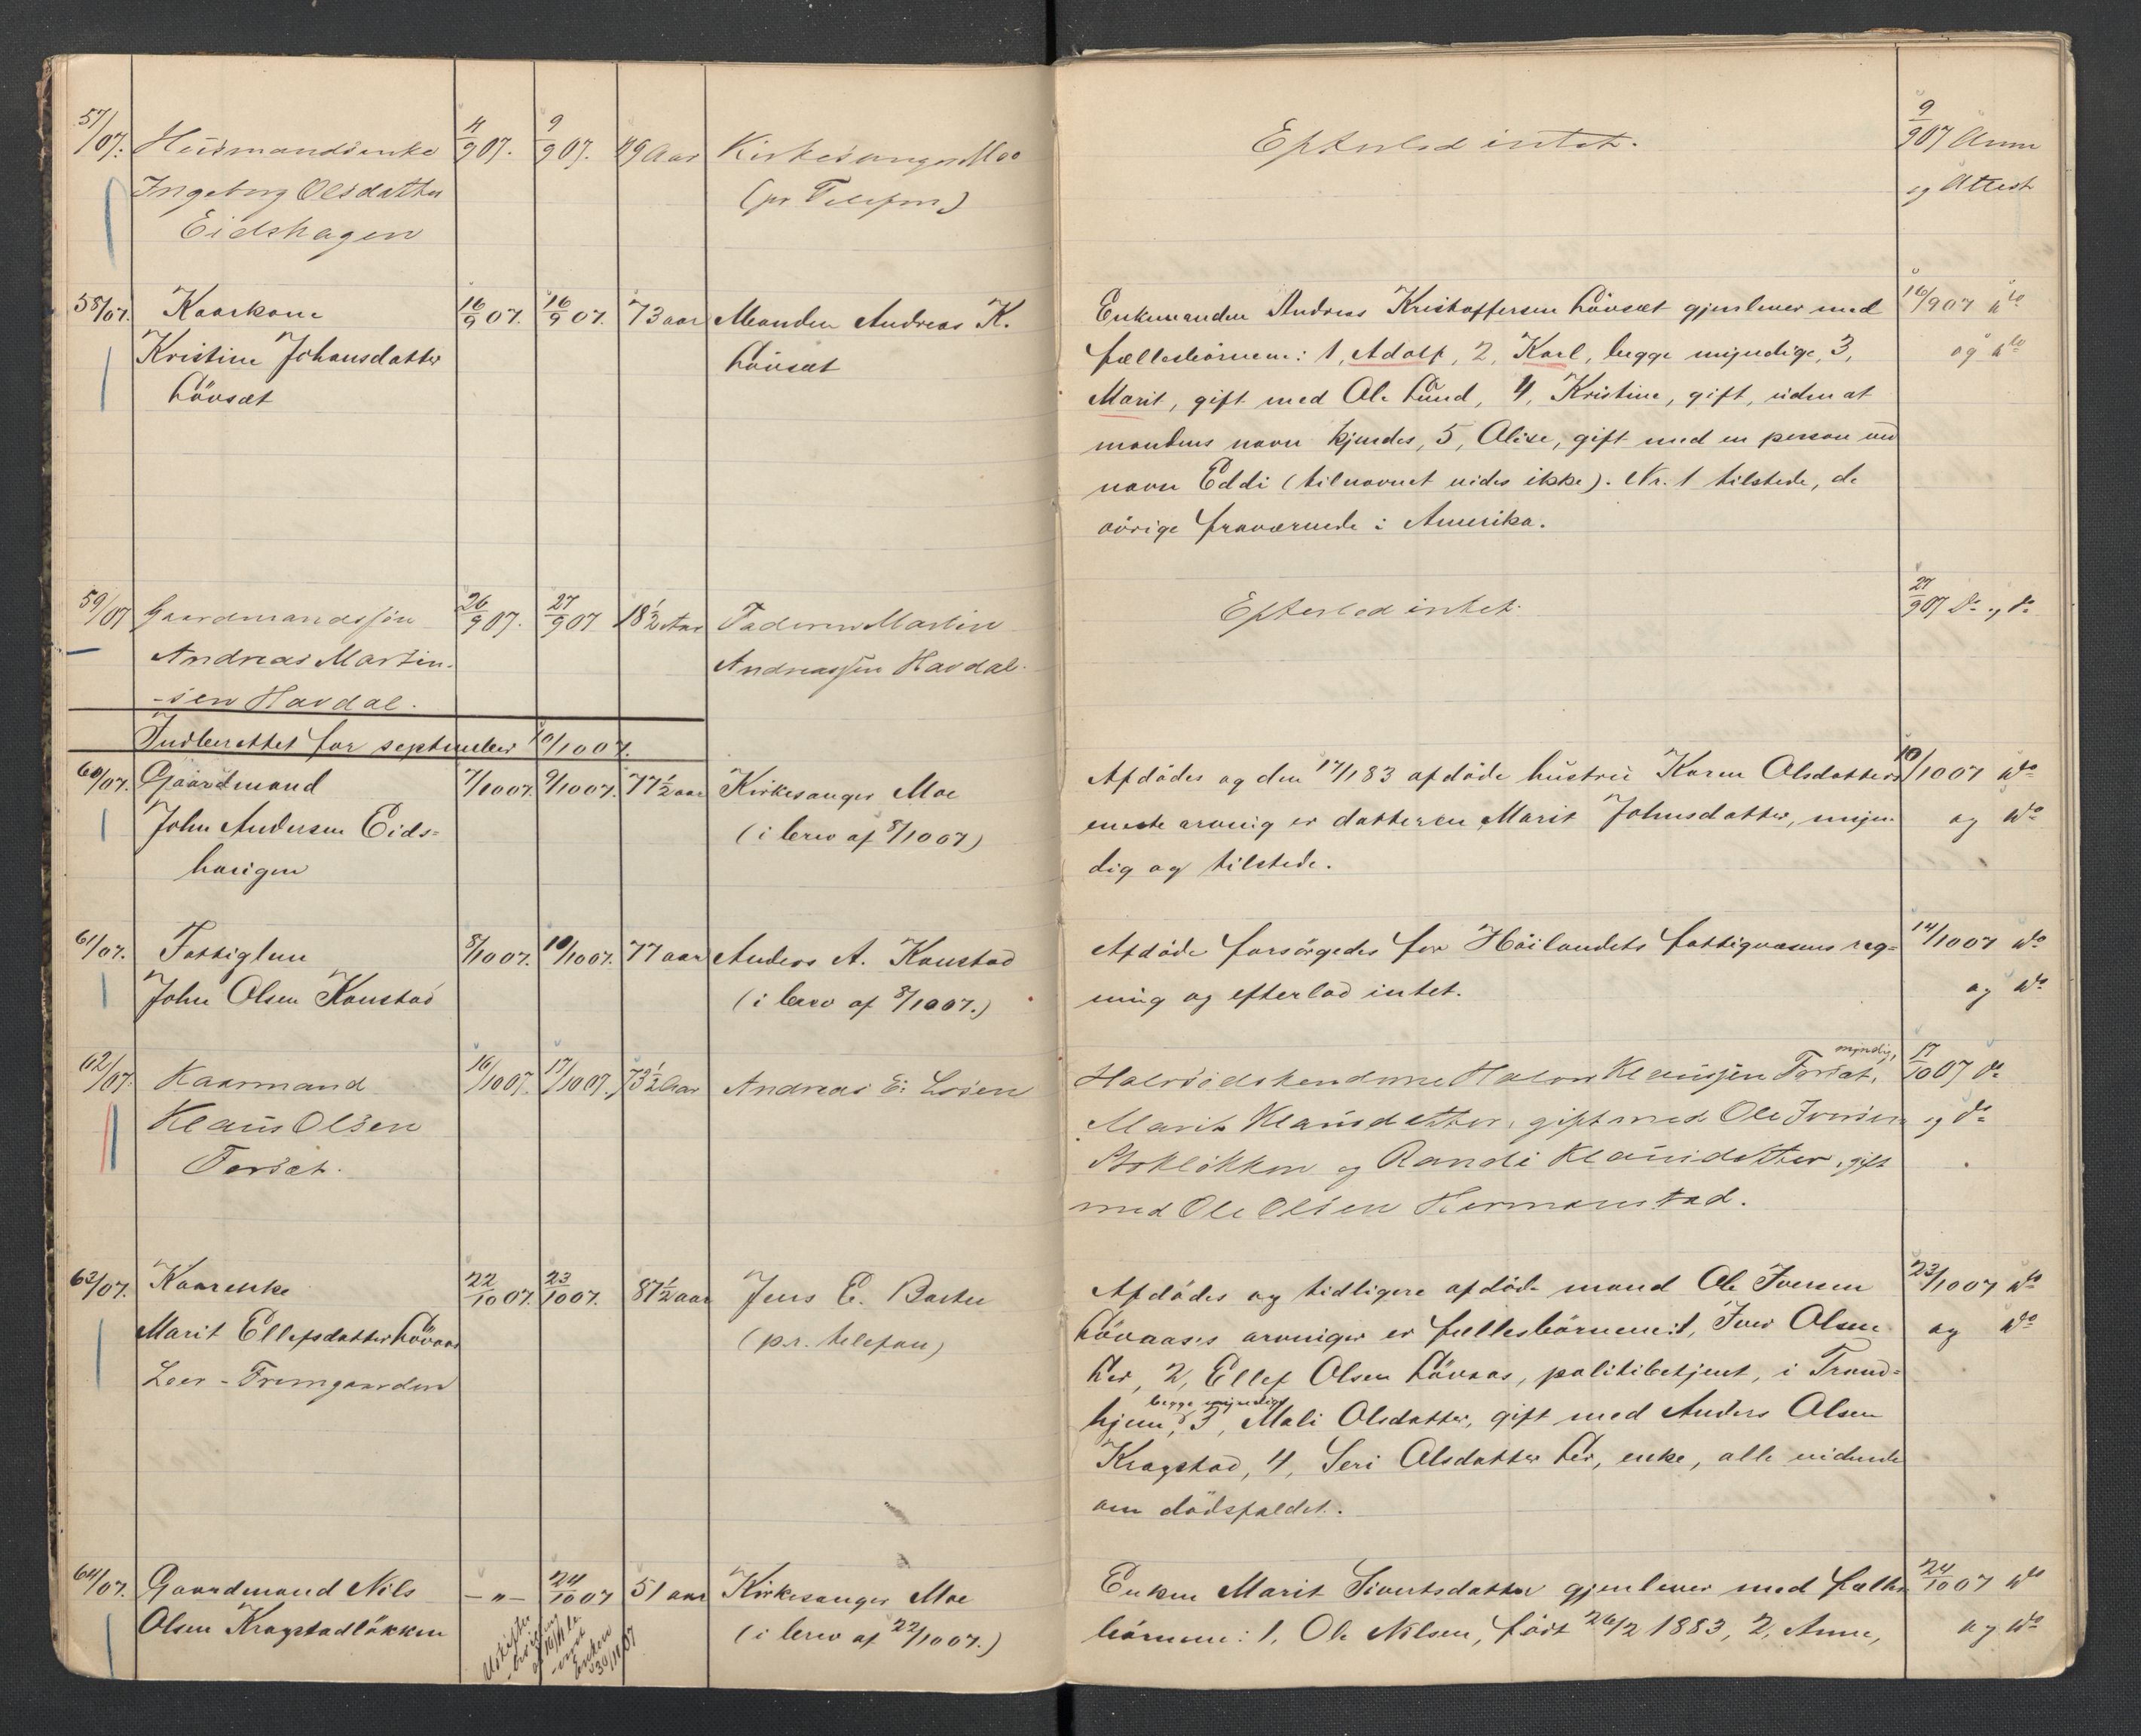 57/07. Husmandsenke 4/9 07. 9/9 07. Aar Kirkesanger Moe Efterlod intet. 9/9 07 Anm
Ingeborg Olsdatter (pr Telefon) og Attest
Eidshagen
58/07. Kaarkone 16/9 07. 16/9 07. 73 aar Manden Andreas K. Enkemanden Andreas Kristoffersen Løvset gjenlever med 16/9 07 do
Kristine Johansdatter Løvset fællesbørnene: 1, Adolf, 2, Karl, begge myndige, 3, og do
Løvset Marit, gift med Ole Lund, 4, Kristine, gift, uden at
mandens navn kjendes, 5, Alise, gift med en person ved
navn Eddi (tilnavnet vides ikke). Nr. 1 tilstede, de
øvrige fraværende i Amerika.
59/07 Gaardmandssøn 26/9 07. 27/9 07 18 1/2 Aar Faderen Martin Efterlod intet. 27/9 07 do og do
Andreas Martin- Andreassen Havdal.
-sen Havdal.
Indberettet for september 10/10 07.
60/07. Gaardmand 7/10 07. 9/10 07. 77 1/2 aar Kirkesanger Moe Afdødes og den 17/1 83 afdøde hustru Karen Olsdatters 10/10 07 do
John Andersen Eids- (i brev af 8/10 07) eneste arving er datteren Marit Johnsdatter, myn- og do
haugen dig og tilstede.
61/07. Fattiglem 8/10 07. 10/10 07. 77 aar Anders A. Konstad Afdøde forsørgedes for Høilandets fattigvæsens reg- 14/10 07 do
John Olsen Konstad (i brev af 8/10 07.) ning og efterlod intet. og do
62/07. Kaarmand 16/10 07. 17/10 07. 73 1/2 Aar Andreas E. Losen Halvsødskendene Halvor Klaussen Forset, myndig, 17/10 07 do
Klaus Olsen Marit Klausdatter, gift med Ole Iversen og do
Forset. Stokløkken og Randi Klausdatter, gift
med Ole Olsen Hermanstad.
63/07. Kaarenke 22/10 07. 23/10 07. 87 1/2 aar Jens E. Bortne Afdødes og tidligere afdøde mand Ole Iversen 23/10 07 do
Marit Ellefsdatter Løvaas (pr. telefon) Løvaas's arvinger er fællesbørnene: 1, Iver Olsen og do
Leer - Fremgaarden Ler, 2, Ellef Olsen Løvaas, politibetjent, i Trond-
hjem, begge myndige, 3, Mali Olsdatter, gift med Anders Olsen
Kragstad, 4, Seri Olsdatter Ler, enke, alle vidende
om dødsfaldet.
64/07. Gaardmand Nils -"- 24/10 07 51 aar Kirkesanger Moe Enken Marit Sivertsdatter gjenlever med fælles 24/10 07 do
Olsen Kragstadløkken (i brev af 22/10 07.) børnene: 1, Ole Nilsen, født 26/2 1883, 2, Anne, og do
Enken
30/11 07